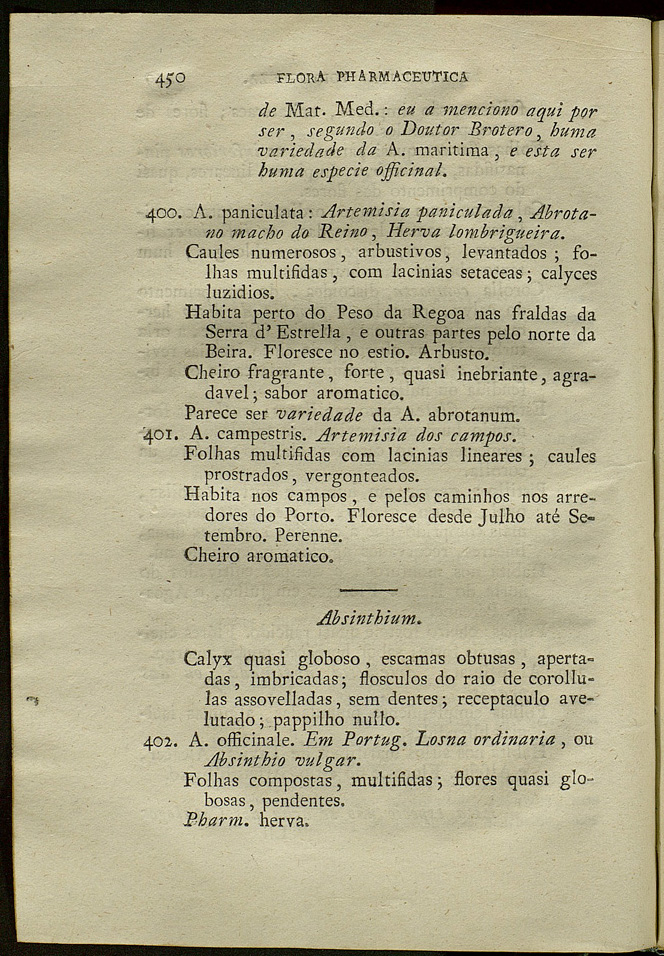 450 FLORA PHARMACEUTICA
de Mat. Med. : eu a menciono aqui por
ser , segundo o Doutor Brotero , huma
variedade da A. maritima , e esta ser
huma especie officinal.
400. A. paniculata : Artemisia paniculada , Abrota-
no macho do Reino , Herva lombrigueira.
Caules numerosos , arbustivos , levantados ; fo-
lhas multifidas , com lacinias setaceas ; calyces
luzidios.
Habita perto do Peso da Regoa nas fraldas da
Serra d' Estrella , e outras partes pelo norte da
Beira. Floresce no estio. Arbusto.
Cheiro fragrante , forte , quasi inebriante , agra-
davel ; sabor aromatico.
Parece ser variedade da A. abrotanum.
401. A. campestris. Artemisia dos campos.
Folhas multifidas com lacinias lineares ; caules
prostrados , vergonteados.
Habita nos campos , e pelos caminhos nos arre-
dores do Porto. Floresce desde Julho até Se-
tembro. Perenne.
Cheiro aromatico.
Absinthium.
Calyx quasi globoso , escamas obtusas , aperta-
das , imbricadas ; flosculos do raio de corollu-
las assovelladas , sem dentes ; receptaculo ave-
lutado ; pappilho nullo.
402. A. officinale. Em Portug. Losna ordinaria , ou
Absinthio vulgar.
Folhas compostas , multifidas ; flores quasi glo-
bosas , pendentes.
Pharm. herva.